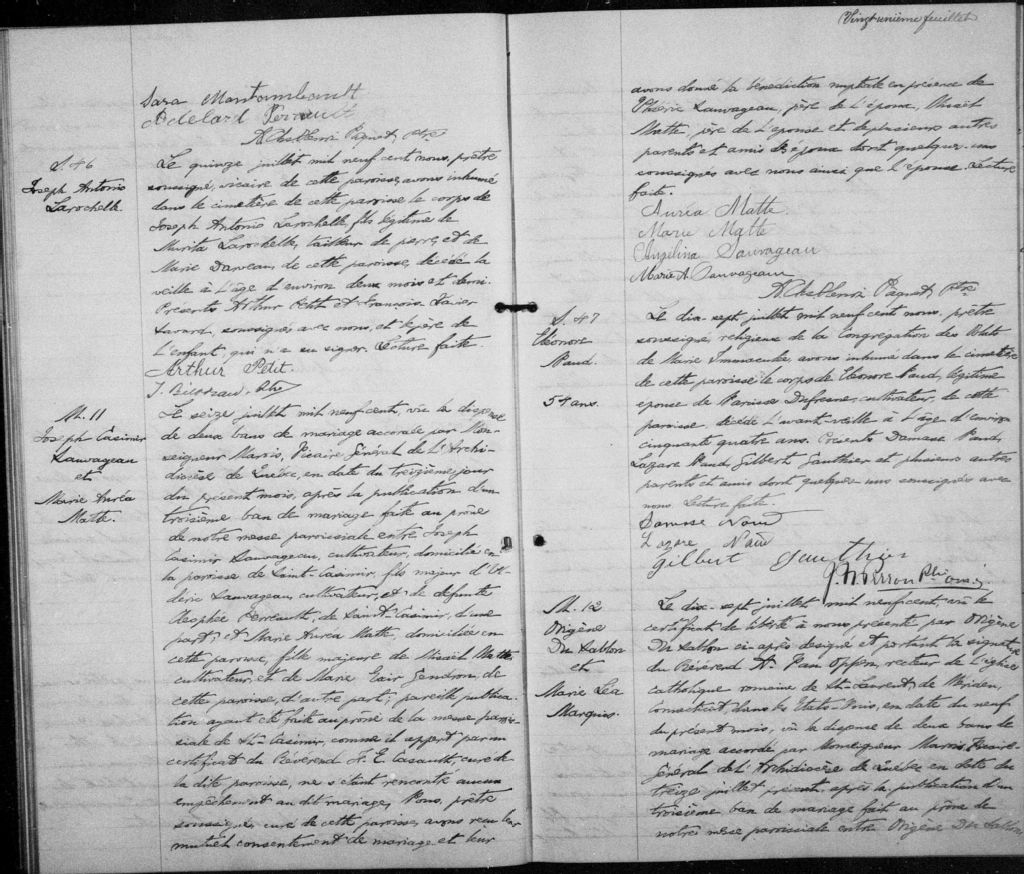 Sara Montambault
Adelard Perrault
Paquet, Ptre
S. 46
Joseph Antonio
Larochelle
Le quinze juillet mil neuf cent nous, prêtre
soussigné, vicaire de cette paroisse, avons inhumé
dans le cimetière de cette paroisse le corps de
Joseph Antonio Larochelle, fils légitime de
Larochelle, tailleur de pierre, et de
Marie Darveau, de cette paroisse, décédé la
veille à l'âge d'environ deux mois et demi.
Présents Arthur Petit et François Xavier
Savard, soussignés avec nous, et le père de
l'enfant, qui n'a su signer. Lecture faite.
Arthur Petit
J. Bilodeau, Ptre
M. 11
Joseph Casimir
Sauvageau
et
Marie Auréa
Matte.
Le seize juillet mil neuf cent, vu la dispense
de deux bans de mariage accordée par Mon-
seigneur Marois, Vicaire Général de l'Archi-
diocèse de Québec, en date du treizième jour
du présent mois, après la publication d'un
troisième ban de mariage faite au prône
de notre messe paroissiale entre Joseph
Casimir Sauvageau, cultivateur, domicilié en
la paroisse de Saint-Casimir, fils majeur d'Ul-
déric Sauvageau, cultivateur, et de défunte
Perreault, de Saint-Casimir, d'une
part; et Marie Auréa Matte, domiciliée en
cette paroisse, fille majeure de Misaël Matte
cultivateur, et de Marie Gendron, de
cette paroisse, d'autre part; pareille publica-
tion ayant été faite au prône de la messe parois-
siale de St-Casimir, comme il appert par un
certificat du Révérend F. E. Casault, curé de
la dite paroisse, ne s'étant rencontré aucun
empêchement au dit mariage, Nous, prêtre
soussigné, curé de cette paroisse, avons reçu leur
mutuel consentement de mariage et leur
Vingt unième feuillet
avons donné la bénédiction nuptiale en présence de
Uldéric Sauvageau, père de l'époux, Misaël
Matte, père de l'épouse et de plusieurs autres
parents et amis de époux dont quelques-uns
soussignés avec nous ainsi que l'épouse. Lecture
faite.
Auréa Matte
Marie Matte
Angelina Sauvageau
Marie A. Sauvageau
Paquet, Ptre
S. 47
Eleonore
Naud.
54 ans.
Le dix-sept juillet mil neuf cent nous, prêtre
soussigné, religieux de la Congrégation des Oblats
de Marie Immaculée, avons inhumé dans le cimetière
de cette paroisse le corps de Eleonore Naud, légitime
épouse de Narcisse Dufresne, cultivateur, de cette
paroisse, décédée l'avant-veille à l'âge d'environ
cinquante quatre ans. Présents Damase Naud,
Lazare Naud, Gilbert Gauthier et plusieurs autres
parents et amis dont quelques uns soussignés avec
nous. Lecture faite.
Damase Naud
Lazare Naud
Gilbert Gauthier
Perron Ptre
M. 12
Origène
Du Sablon
et
Marie Léa
Marquis.
Le dix-sept juillet mil neuf cent, vu le
certificat de liberté à nous présenté par Origène
Du Sablon ci-après désigné et portant la signature
du Révérend A. Van Oppen, recteur de l'église
catholique romaine de St-Laurent, de Meriden,
Connecticut dans les Etats-Unis, en date du neuf
du présent mois, vu la dispense de deux bans de
mariage accordé par Monseigneur Marois, Vicaire-
Général de l'Archidiocèse de Québec en date du
treize juillet présent, après la publication d'un
troisième ban de mariage fait au prône de
notre messe paroissiale entre Origène Du Sablon